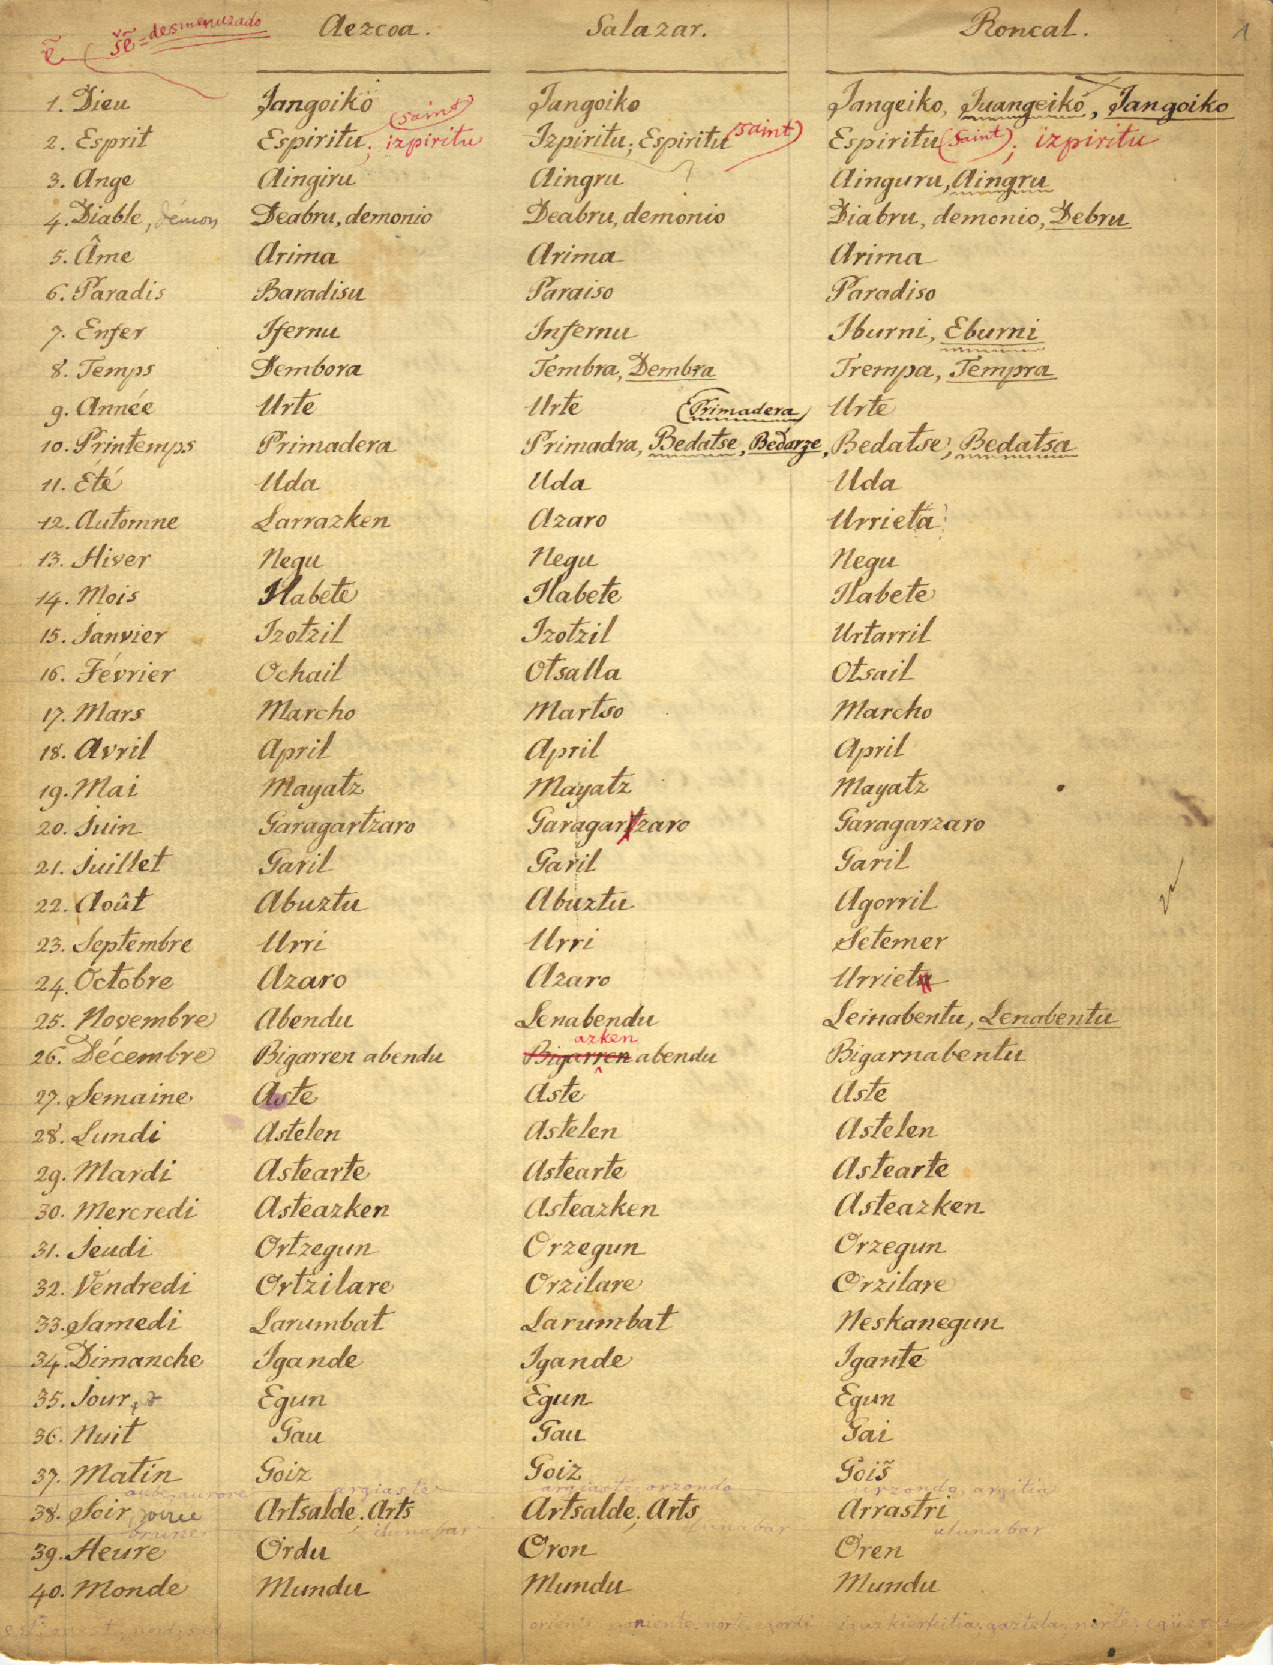 ẽ šẽ = desmenuzado Aezcoa. Salazar. Roncal. 1
1. Dieu Jangoiko Jangoiko Jangeiko, Juangeiko, Jangoiko
2. Esprit Espiritu (saint); izpiritu Izpiritu; Espiritu (saint) Espiritu (saint); izpiritu
3. Ange Aingiru Aingru ? Ainguru, Aingru
4. Diable, démon Deabru, demonio Deabru, demonio Diabru, demonio, Debru
5. Âme Arima Arima Arima
6. Paradis Baradisu Paraiso Paradiso
7. Enfer Ifernu Infernu Iburni, Eburni
8. Temps Dembora Tembra, Dembra Trempa, Tempra
9. Année Urte Urte Urte
(Primadera)
10. Printemps Primadera Primadra, Bedatse, Bedarze, Bedatse, Bedatsa
11. Eté Uda Uda Uda
12. Automne Larrazken Azaro Urrieta
13. Hiver Negu Negu Negu
14. Mois Ilabete Ilabete Ilabete
15. Janvier Izotzil Izotzil Urtarril
16. Février Ochail Otsalla Otsail
17. Mars Marcho Martso Marcho
18. Avril April April April
19. Mai Mayatz Mayatz Mayatz
20. Juin Garagartzaro Garagartzaro Garagarzaro
21. Juillet Garil Garil Garil
22. Août Abuztu Abuztu Agorril
23. Septembre Urri Urri Setemer
24. Octobre Azaro Azaro Urrieta
25. Novembre Abendu Lenabendu Leinabentu, Lenabentu
azken
26. Décembre Bigarren abendu Bigarren abendu Bigarnabentu
27. Semaine Aste Aste Aste
28. Lundi Astelen Astelen Astelen
29. Mardi Astearte Astearte Astearte
30. Mercredi Asteazken Asteazken Asteazken
31. Jeudi Ortzegun Orzegun Orzegun
32. Vendredi Ortzilare Orzilare Orzilare
33. Samedi Larumbat Larumbat Neskanegun
34. Dimanche Igande Igande Igante
35. Jour, Egun Egun Egun
36. Nuit Gau Gau Gai
37. Matin Goiz Goiz Goiš
aube, aurore argiaste argiaste, orzondo urzondo, argitia
38. Soir, Artsalde. Arts Artsalde, Arts Arrastri
brune ilunabar ilunabar ulunabar
39. Heure Ordu Oron Oren
40. Monde Mundu Mundu Mundu
est, ouest, nord, sud oriente, poniente, norte, egordi iguzkierkitia, gaztela, norte,